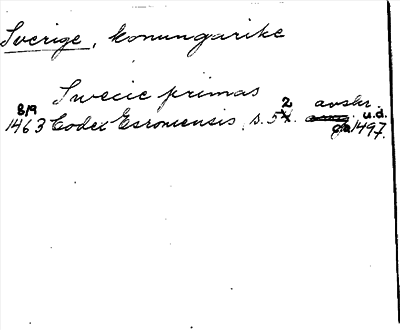 Sverige, konungarike
Swecie primas
8/9 2 avskr. u.d.
1463 Codex Esromensis, s. 5 1497.